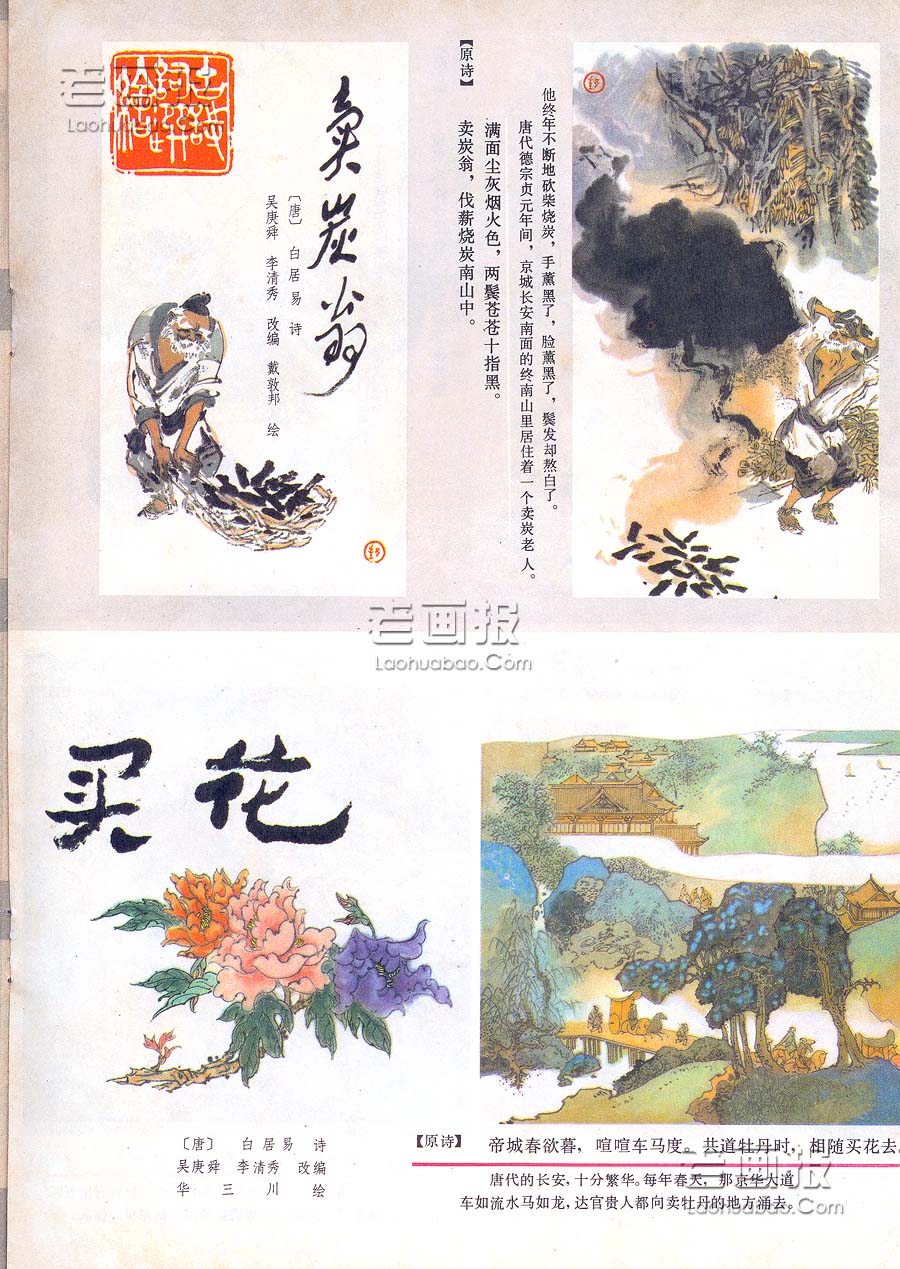 老画报
Laohuabao.Com
卖炭翁
〔唐〕 白居易 诗
吴庚舜 李清秀 改编 戴敦邦 绘
【原诗】
卖炭翁，伐薪烧炭南山中。
满面尘灰烟火色，两鬓苍苍十指黑。
唐代德宗贞元年间，京城长安南面的终南山里居住着一个卖炭老人。
他终年不断地砍柴烧炭，手薰黑了，脸薰黑了，鬓发却熬白了。
老画报
Laohuabao.Com
买花
〔唐〕 白居易 诗
吴庚舜 李清秀 改编
华三川 绘
【原诗】 帝城春欲暮，喧喧车马度。共道牡丹时，相随买花去。
唐代的长安，十分繁华。每年春天，那京华大道
车如流水马如龙，达官贵人都向卖牡丹的地方涌去。
老画报
Laohuabao.Com